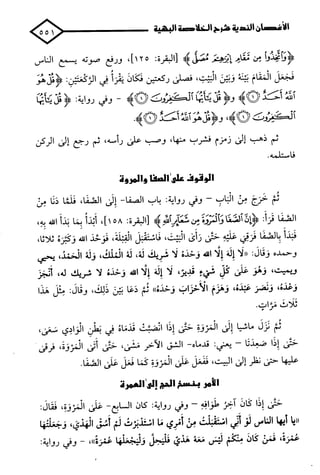 الأغصان الندية شرح الخلاصة البهية ٥٥١
﴿وَاتَّخِذُوا مِن مَّقَامِ إِبْرَاهِيمَ مُصَلًّى﴾ [البقرة: ١٢٥]، ورفع صوته يسمع الناس
فَجَعَلَ المَقَامَ بَيْنَهُ وَبَيْنَ الْبَيْتِ، فصلى ركعتين فَكَانَ يَقْرَأُ فِي الرَّكْعَتَيْنِ: ﴿قُلْ هُوَ
اللَّهُ أَحَدٌ ۝١﴾ و﴿قُلْ يَا أَيُّهَا الْكَافِرُونَ ۝١﴾ - وفي رواية: ﴿قُلْ يَا أَيُّهَا
الْكَافِرُونَ ۝١﴾، و﴿قُلْ هُوَ اللَّهُ أَحَدٌ ۝١﴾.
ثم ذهب إلى زمزم فشرب منها، وصب على رأسه، ثم رجع إلى الركن
فاستلمه.
الوقوف على الصفا والمروة
ثُمَّ خَرَجَ مِنْ الْبَابِ - وفي رواية: باب الصفا- إِلَى الصَّفَا، فَلَمَّا دَنَا مِنْ
الصَّفَا قَرَأَ: ﴿إِنَّ الصَّفَا وَالْمَرْوَةَ مِن شَعَائِرِ اللَّهِ﴾ [البقرة: ١٥٨]، أَبْدَأُ بِمَا بَدَأَ الله بِهِ،
فَبَدَأَ بِالصَّفَا فَرَقِيَ عَلَيْهِ حَتَّى رَأَى الْبَيْتَ، فَاسْتَقْبَلَ الْقِبْلَةَ، فَوَحَّدَ الله وَكَبَّرَهُ ثلاثا،
وحمده وَقَالَ: «لَا إِلَهَ إِلَّا الله وَحْدَهُ لَا شَرِيكَ لَهُ، لَهُ الْمُلْكُ، وَلَهُ الْحَمْدُ، يحيي
ويميت، وَهُوَ عَلَى كُلِّ شَيْءٍ قَدِيرٌ، لَا إِلَهَ إِلَّا الله وَحْدَهُ لا شريك له، أَنْجَزَ
وَعْدَهُ، وَنَصَرَ عَبْدَهُ، وَهَزَمَ الْأَحْزَابَ وَحْدَهُ» ثُمَّ دَعَا بَيْنَ ذَلِكَ، وقال: مِثْلَ هَذَا
ثَلَاثَ مَرَّاتٍ.
ثُمَّ نَزَلَ ماشيا إِلَى الْمَرْوَةِ حَتَّى إِذَا انْصَبَّتْ قَدَمَاهُ فِي بَطْنِ الْوَادِي سَعَى،
حَتَّى إِذَا صَعِدَتَا - يعني: قدماه- الشق الآخر مَشَى، حَتَّى أَتَى الْمَرْوَةَ، فرقى
عليها حتى نظر إلى البيت، فَفَعَلَ عَلَى الْمَرْوَةِ كَمَا فَعَلَ عَلَى الصَّفَا.
الأمر بفسخ الحج إلى العمرة
حَتَّى إِذَا كَانَ آخِرُ طَوَافِهِ - وفي رواية: كان السابع- عَلَى الْمَرْوَةِ، فَقَالَ:
«يا أيها الناس لَوْ أَنِّي اسْتَقْبَلْتُ مِنْ أَمْرِي مَا اسْتَدْبَرْتُ لَمْ أَسُقْ الْهَدْيَ، وَجَعَلْتُهَا
عُمْرَةً، فَمَنْ كَانَ مِنْكُمْ لَيْسَ مَعَهُ هَدْيٌ فَلْيَحِلَّ وَلْيَجْعَلْهَا عُمْرَةً»، - وفي رواية: